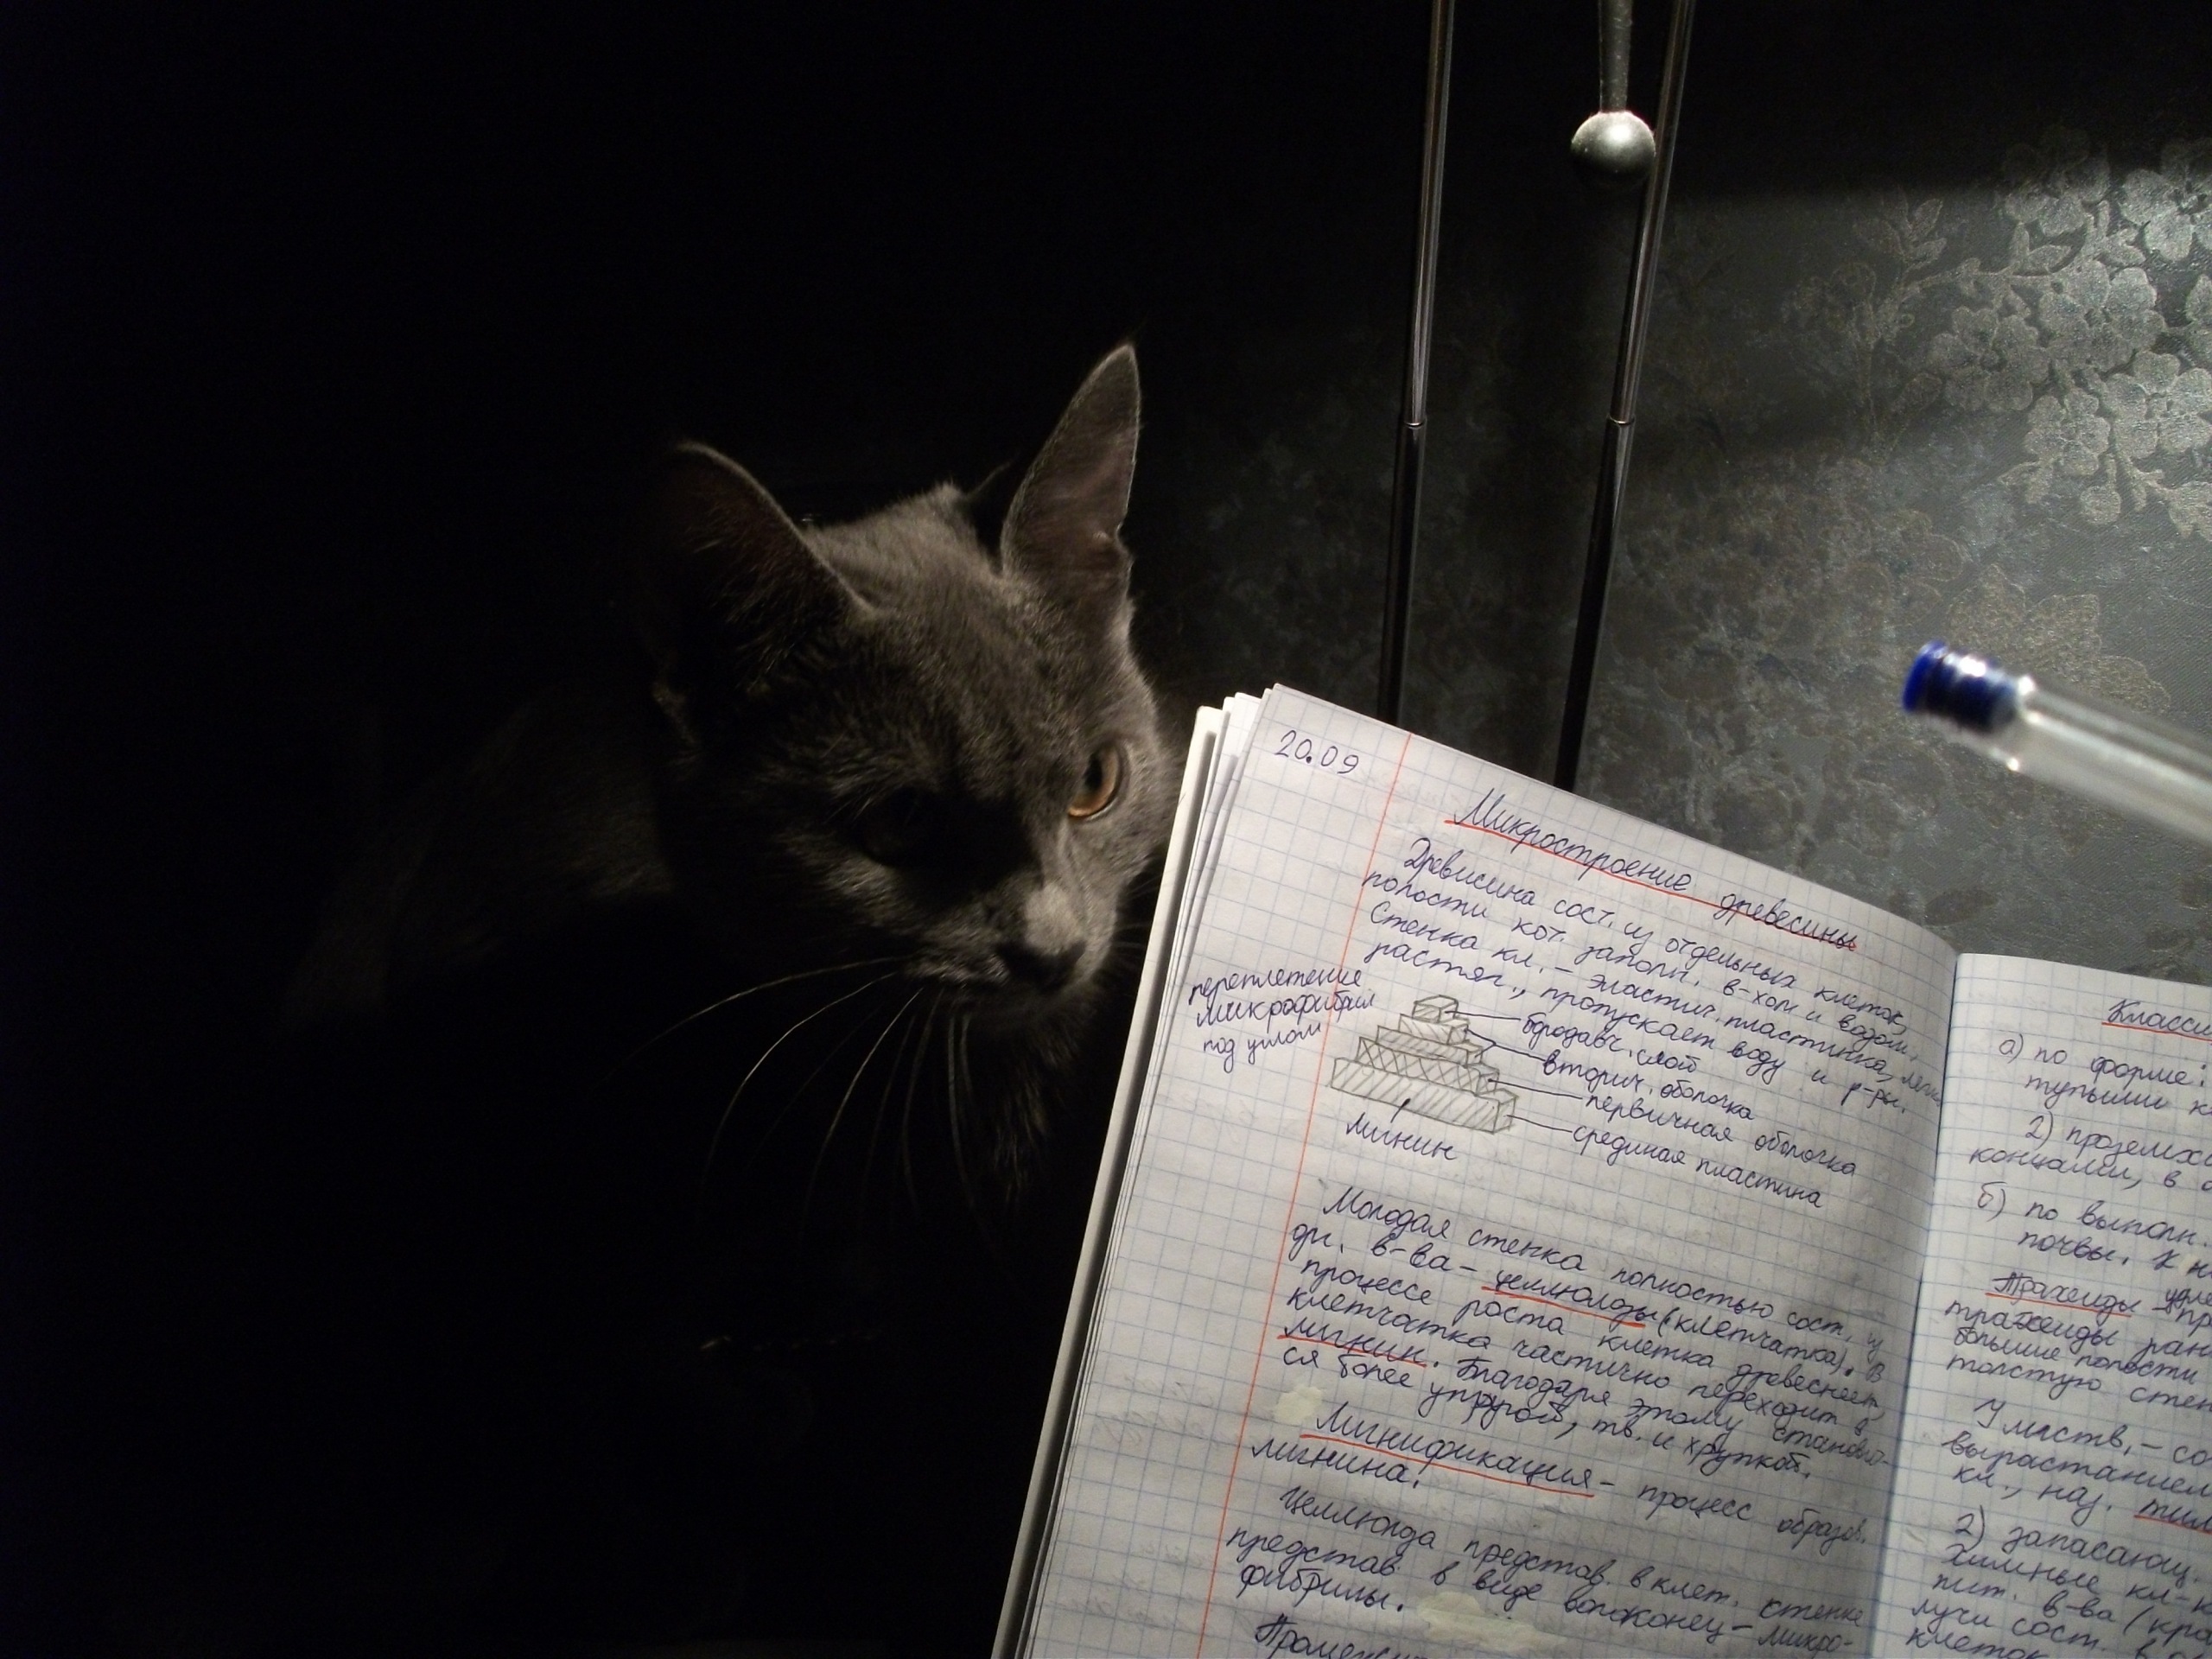 20.09
Микростроение древесины
Древисина сост. из отдельных клеток,
полости кот. заполн. в-хом и водой.
Стенка кл. – эластич. пластинка, легко
растяг., пропускает воду и р-ры.
переплетение
микрофибрил
под углом
бородавч. слой
вторич. оболочка
первичная оболочка
срединая пластина
лигнин
Молодая стенка полностью сост. из
в-ва – целлюлозы (клетчатка). В
процессе роста клетка древеснеет,
клетчатка частично переходит в
лигнин. Благодаря этому становит-
ся более упругой, тв. и хрупкой.
Лигнификация – процесс образов.
лигнина.
Целлюлоза представ. в клет. стенке
представ. в виде волоконец – микро-
фибрилы.
а) по форме:
тупыми
2)
концами, в
б) по выполн.
почвы. К
Трахеиды
трахеиды ран
большие полости
толстую стен
У листв. – со
вырастанием
кл., наз.
2) запасающ.
пит. в-ва (кра
лучи сост.
клеток